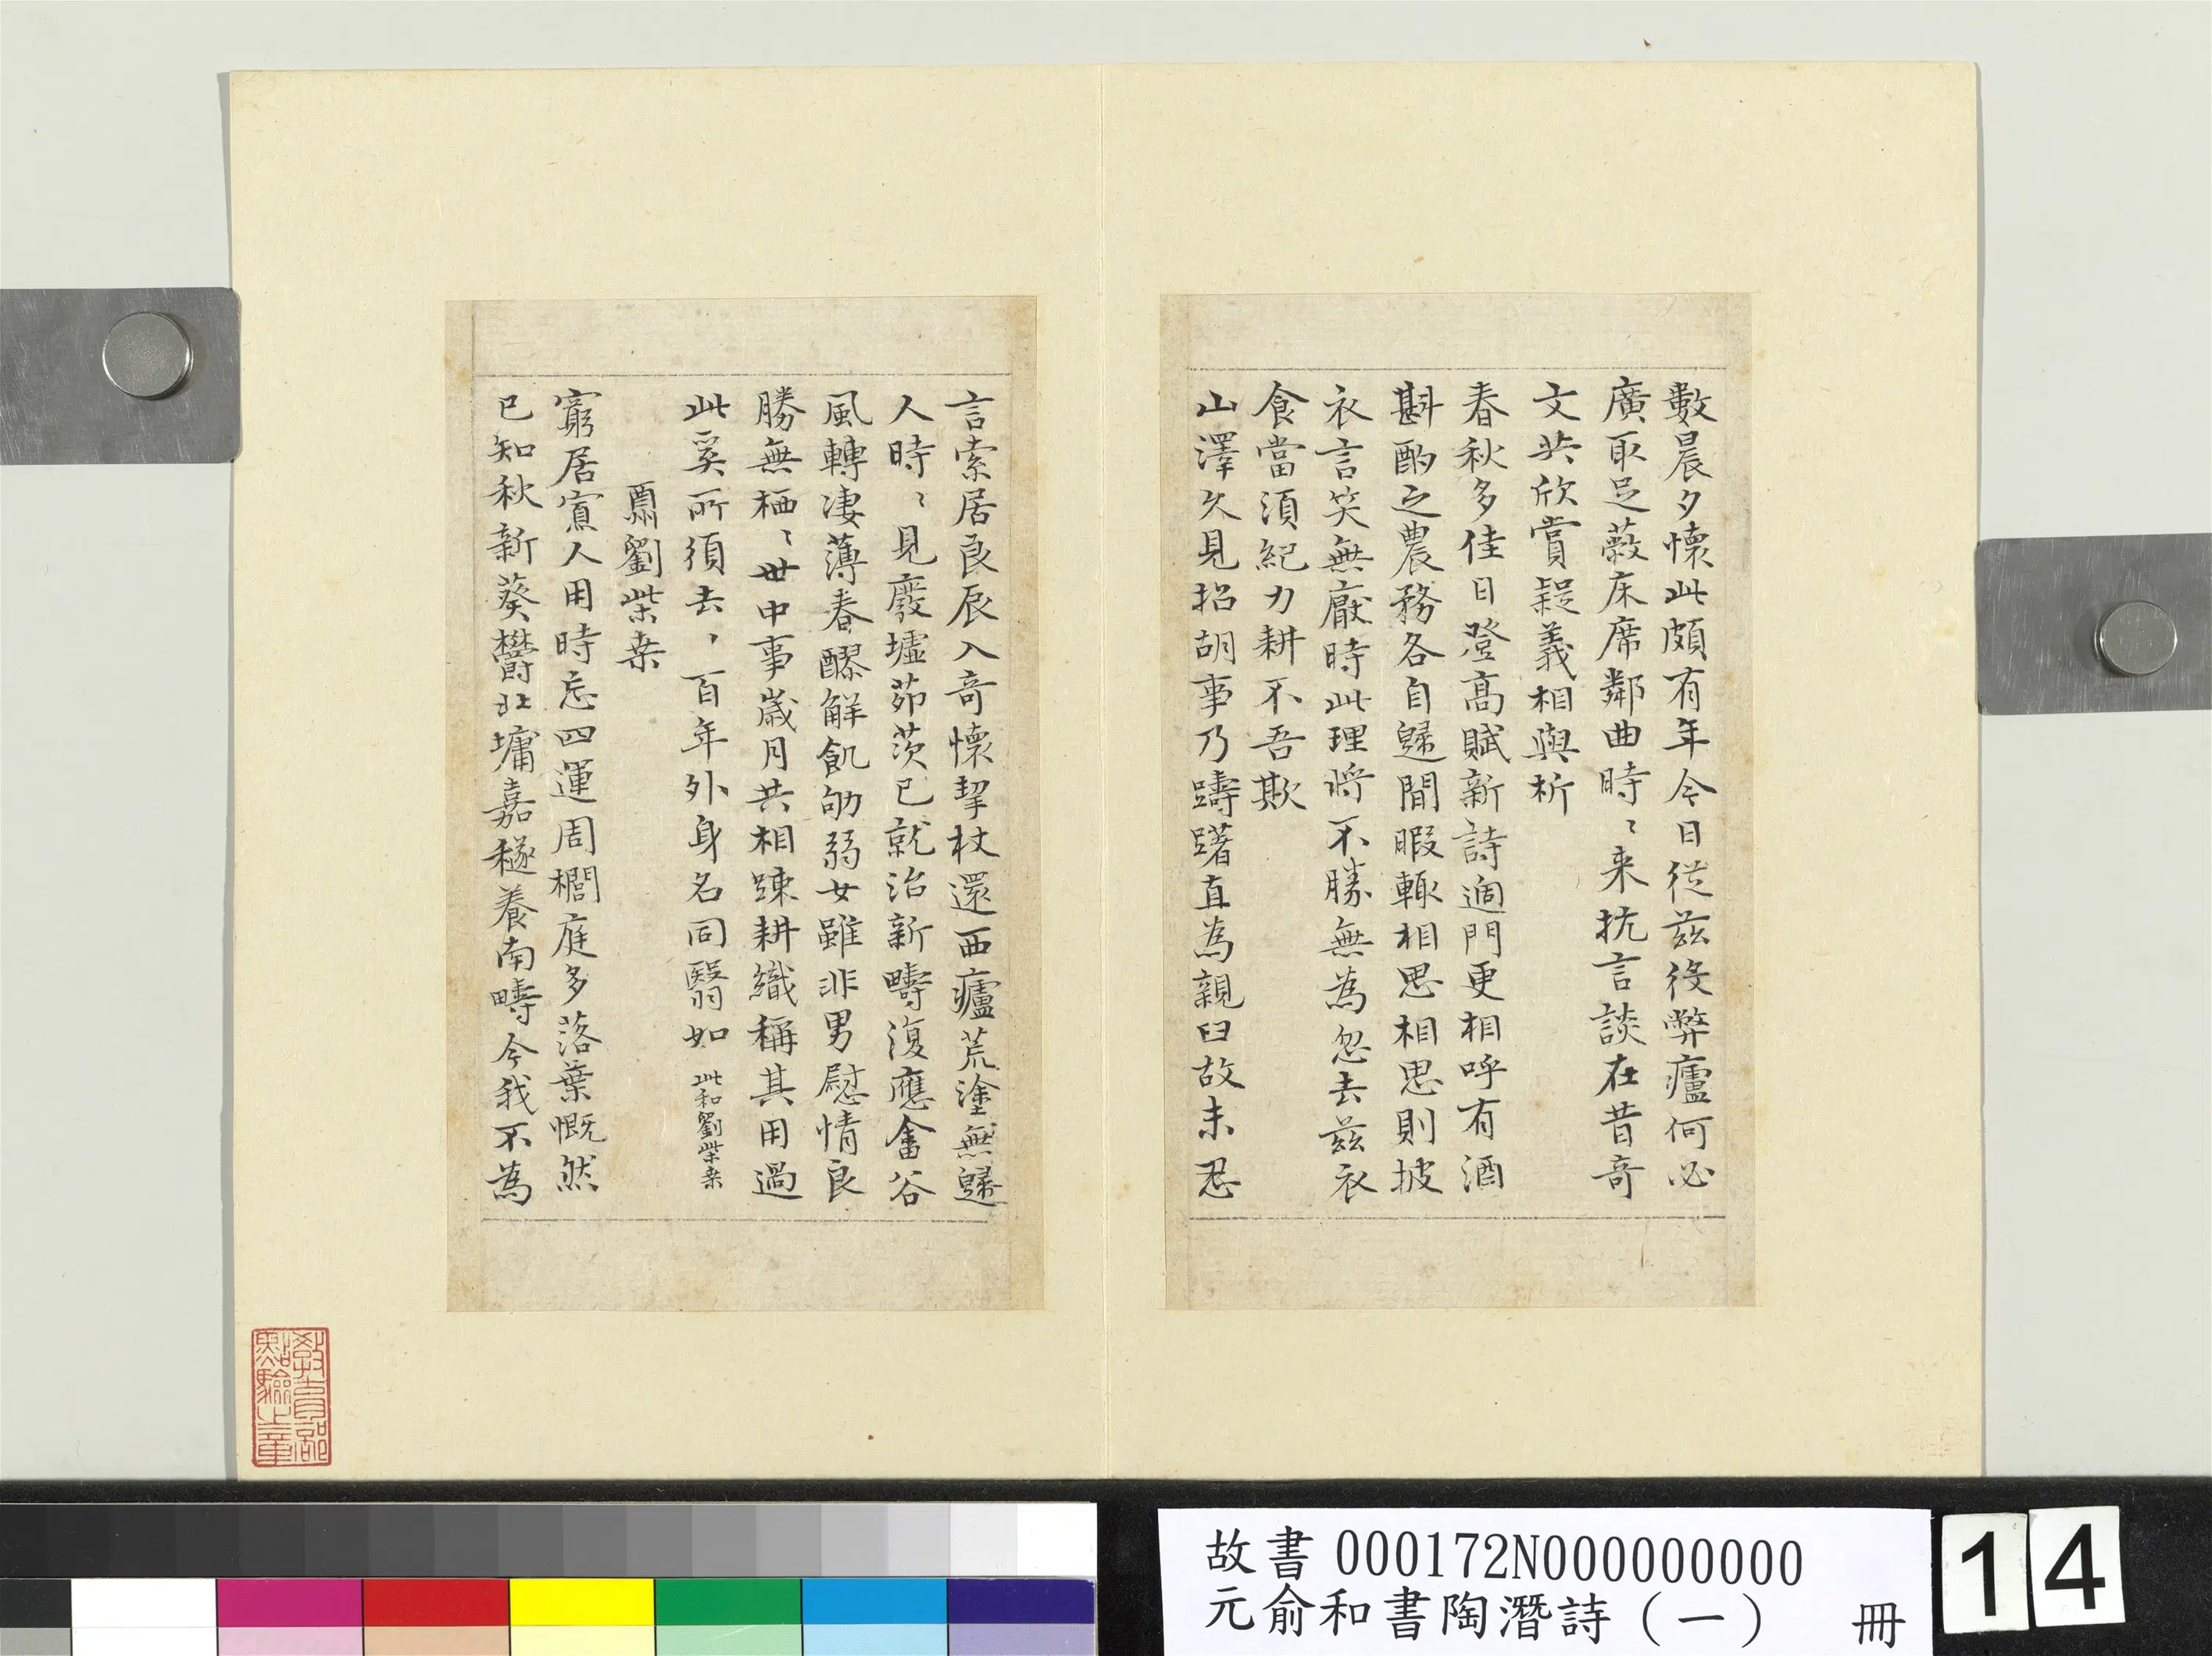 數晨夕懷此頗有年今日從茲役弊廬何必
廣取足蔽床席鄰曲時〻来抗言談在昔奇
文共欣賞疑義相與析
春秋多佳日登高賦新詩過門更相呼有酒
斟酌之農務各自歸閒暇輒相思相思則披
衣言笑無厭時此理將不勝無為忽去茲衣
食當須紀力耕不吾欺
山澤久見招胡事乃躊躇直為親旧故未忍
言索居良辰入奇懷挈杖還西廬荒塗無歸
人時〻見廢墟茆茨已就治新疇復應畬谷
風轉凄薄春醪解飢劬弱女雖非男慰情良
勝無栖〻世中事歲月共相踈耕織稱其用過
此奚所須去〻百年外身名同翳如 此和劉柴桒
酬劉柴桒
窮居寡人用時忘四運周櫚庭多落葉慨然
已知秋新葵欝北墉嘉穟養南疇今我不為
教育部
點驗之章
故書 000172N000000000
元俞和書陶潛詩（一） 冊
14